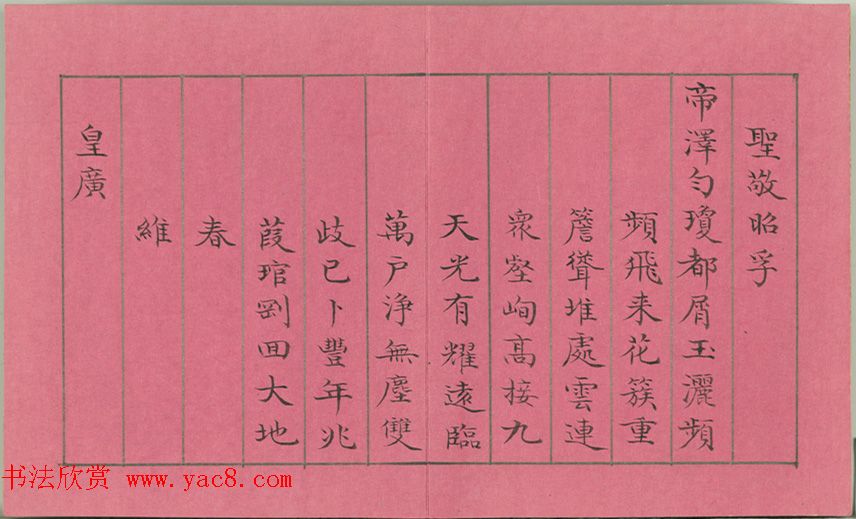 聖敬昭孚
帝澤勻瓊都屑玉灑頻
頻飛来花簇重
簷聳堆處雲連
衆壑峋高接九
天光有耀遠臨
萬戸淨無塵雙
歧已卜豐年兆
葭琯剛回大地
春
維
皇廣
书法欣赏 www.yac8.com